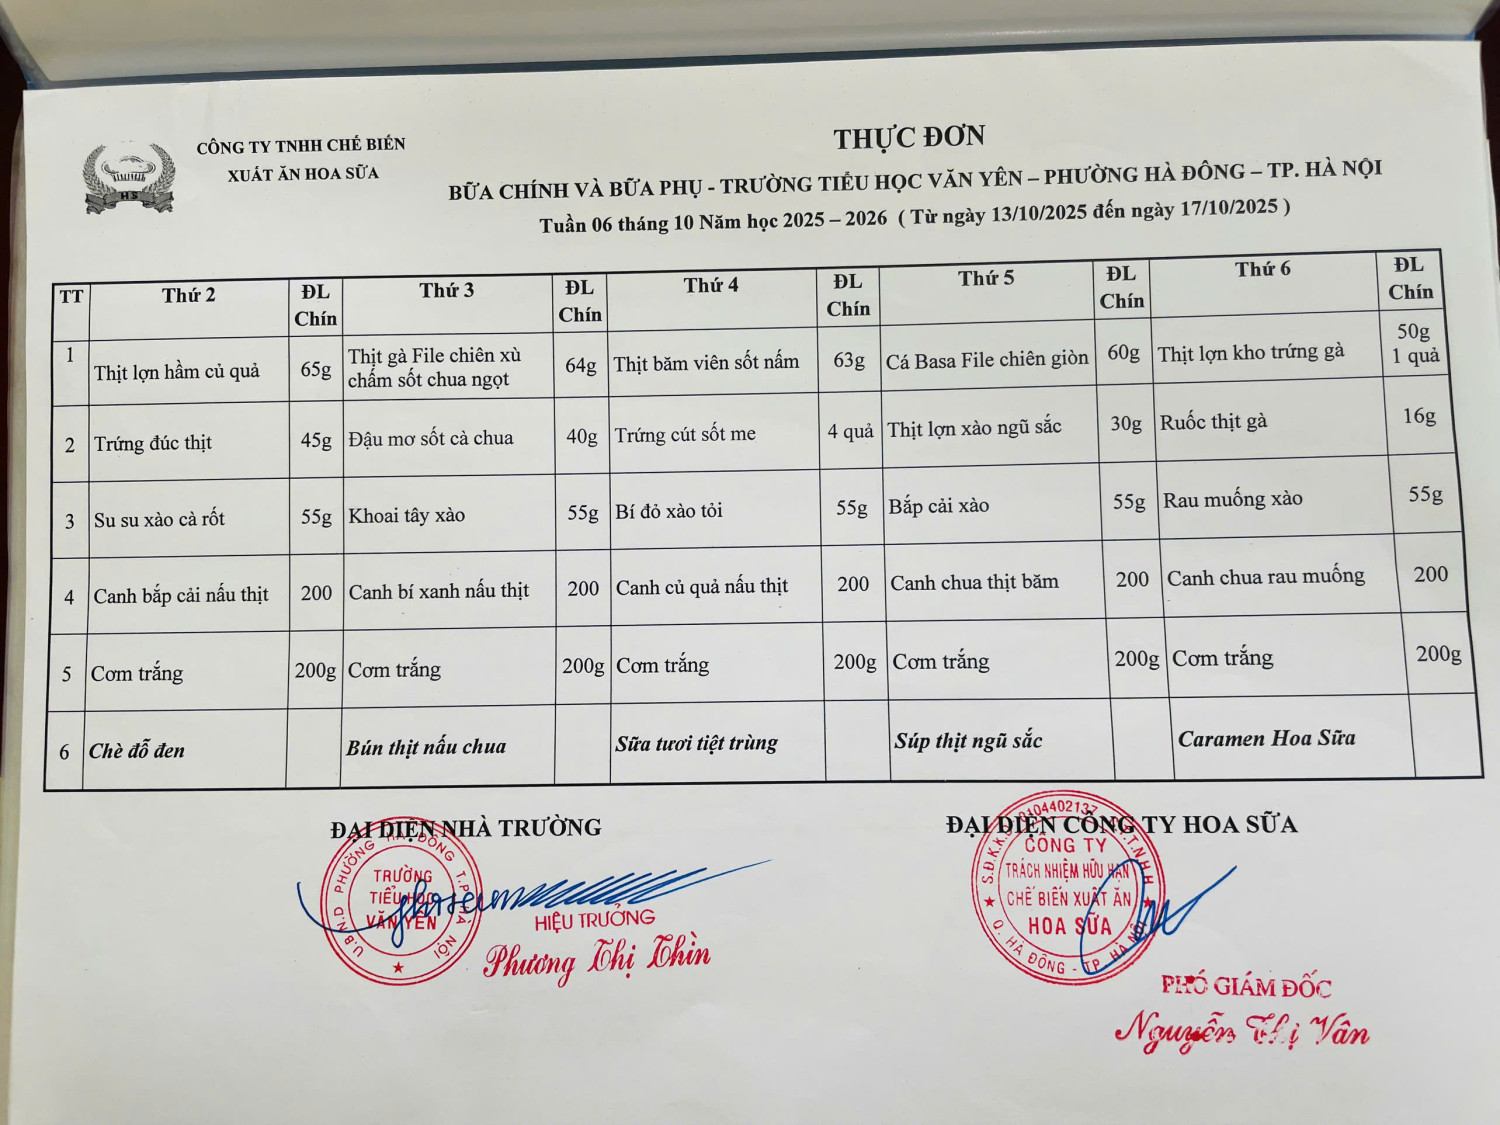 CÔNG TY TNHH CHẾ BIẾN
XUẤT ĂN HOA SỮA
HS
THỰC ĐƠN
BỮA CHÍNH VÀ BỮA PHỤ - TRƯỜNG TIỂU HỌC VĂN YÊN – PHƯỜNG HÀ ĐÔNG – TP. HÀ NỘI
Tuần 06 tháng 10 Năm học 2025 – 2026 ( Từ ngày 13/10/2025 đến ngày 17/10/2025 )
TT Thứ 2 ĐL Chín Thứ 3 ĐL Chín Thứ 4 ĐL Chín Thứ 5 ĐL Chín Thứ 6 ĐL Chín
1 Thịt lợn hầm củ quả 65g Thịt gà File chiên xù chấm sốt chua ngọt 64g Thịt băm viên sốt nấm 63g Cá Basa File chiên giòn 60g Thịt lợn kho trứng gà 50g 1 quả
2 Trứng đúc thịt 45g Đậu mơ sốt cà chua 40g Trứng cút sốt me 4 quả Thịt lợn xào ngũ sắc 30g Ruốc thịt gà 16g
3 Su su xào cà rốt 55g Khoai tây xào 55g Bí đỏ xào tỏi 55g Bắp cải xào 55g Rau muống xào 55g
4 Canh bắp cải nấu thịt 200 Canh bí xanh nấu thịt 200 Canh củ quả nấu thịt 200 Canh chua thịt băm 200 Canh chua rau muống 200
5 Cơm trắng 200g Cơm trắng 200g Cơm trắng 200g Cơm trắng 200g Cơm trắng 200g
6 Chè đỗ đen Bún thịt nấu chua Sữa tươi tiệt trùng Súp thịt ngũ sắc Caramen Hoa Sữa
ĐẠI DIỆN NHÀ TRƯỜNG
U.B.N.D PHƯỜNG HÀ ĐÔNG T.P HÀ NỘI
TRƯỜNG
TIỂU HỌC
VĂN YÊN
HIỆU TRƯỞNG
Phương Thị Thìn
ĐẠI DIỆN CÔNG TY HOA SỮA
S.Đ.K.K.D: 0104402137 C.T.T.N.H.H
CÔNG TY
TRÁCH NHIỆM HỮU HẠN
CHẾ BIẾN XUẤT ĂN
HOA SỮA
Q. HÀ ĐÔNG - TP. HÀ NỘI
PHÓ GIÁM ĐỐC
Nguyễn Thị Vân